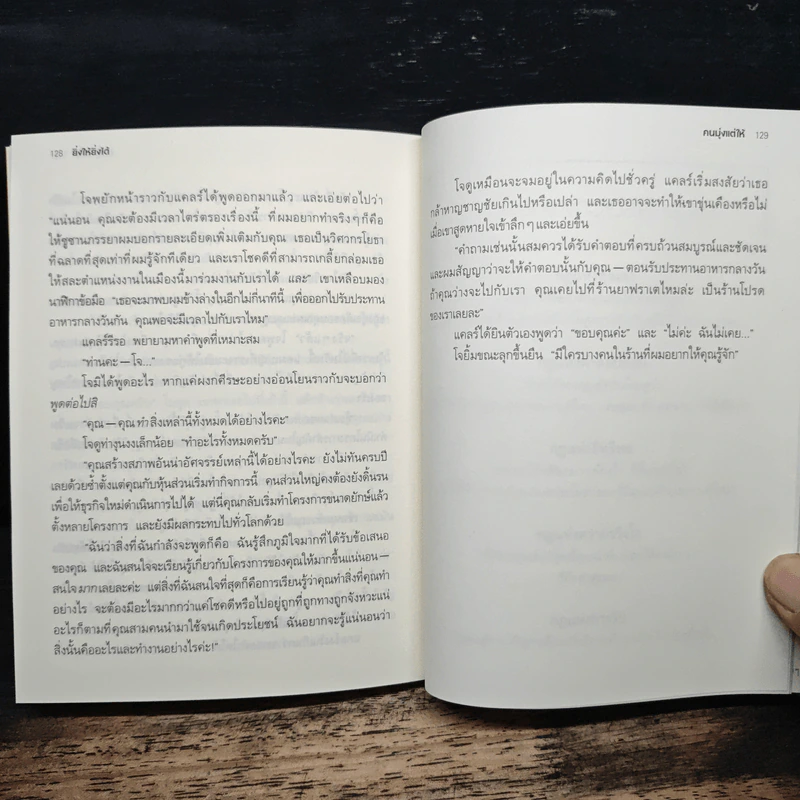 128 ยิ่งให้ยิ่งได้
โจพยักหน้าราวกับแคลร์ได้พูดออกมาแล้ว และเอ่ยต่อไปว่า
“แน่นอน คุณจะต้องมีเวลาไตร่ตรองเรื่องนี้ ที่ผมอยากทำจริงๆ ก็คือ
ให้ซูซานภรรยาผมบอกรายละเอียดเพิ่มเติมกับคุณ เธอเป็นวิศวกรโยธา
ที่ฉลาดที่สุดเท่าที่ผมรู้จักทีเดียว และเราโชคดีที่สามารถเกลี้ยกล่อมเธอ
ให้สละตำแหน่งงานในเมืองนี้มาร่วมงานกับเราได้ และ” เขาเหลือบมอง
นาฬิกาข้อมือ “เธอจะมาพบผมข้างล่างในอีกไม่กี่นาทีนี้ เพื่อออกไปรับประทาน
อาหารกลางวันกัน คุณพอจะมีเวลาไปกับเราไหม”
แคลร์รีรอ พยายามหาคำพูดที่เหมาะสม
“ท่านคะ — โจ...”
โจมิได้พูดอะไร หากแค่ผงกศีรษะอย่างอ่อนโยนราวกับจะบอกว่า
พูดต่อไปสิ
“คุณ — คุณทำสิ่งเหล่านี้ทั้งหมดได้อย่างไรคะ”
โจดูท่างุนงงเล็กน้อย “ทำอะไรทั้งหมดครับ”
“คุณสร้างสภาพอันน่าอัศจรรย์เหล่านี้ได้อย่างไรคะ ยังไม่ทันครบปี
เลยด้วยซ้ำตั้งแต่คุณกับหุ้นส่วนเริ่มทำกิจการนี้ คนส่วนใหญ่คงต้องยังดิ้นรน
เพื่อให้ธุรกิจใหม่ดำเนินการไปได้ แต่นี่คุณกลับเริ่มทำโครงการขนาดยักษ์แล้ว
ตั้งหลายโครงการ และยังมีผลกระทบไปทั่วโลกด้วย
“ฉันว่าสิ่งที่ฉันกำลังจะพูดก็คือ ฉันรู้สึกภูมิใจมากที่ได้รับข้อเสนอ
ของคุณ และฉันสนใจจะเรียนรู้เกี่ยวกับโครงการของคุณให้มากขึ้นแน่นอน —
สนใจมากเลยละค่ะ แต่สิ่งที่ฉันสนใจที่สุดก็คือการเรียนรู้ว่าคุณทำสิ่งที่คุณทำ
อย่างไร จะต้องมีอะไรมากกว่าแค่โชคดีหรือไปอยู่ถูกที่ถูกทางถูกจังหวะแน่
อะไรก็ตามที่คุณสามคนนำมาใช้จนเกิดประโยชน์ ฉันอยากจะรู้แน่นอนว่า
สิ่งนั้นคืออะไรและทำงานอย่างไรค่ะ!”
คนมุ่งแต่ให้ 129
โจดูเหมือนจะจมอยู่ในความคิดไปชั่วครู่ แคลร์เริ่มสงสัยว่าเธอ
กล้าหาญชาญชัยเกินไปหรือเปล่า และเธออาจจะทำให้เขาขุ่นเคืองหรือไม่
เมื่อเขาสูดหายใจเข้าลึกๆ และเอ่ยขึ้น
“คำถามเช่นนั้นสมควรได้รับคำตอบที่ครบถ้วนสมบูรณ์และชัดเจน
และผมสัญญาว่าจะให้คำตอบนั้นกับคุณ — ตอนรับประทานอาหารกลางวัน
ถ้าคุณว่างจะไปกับเรา คุณเคยไปที่ร้านยาฟราเตไหมล่ะ เป็นร้านโปรด
ของเราเลยละ”
แคลร์ได้ยินตัวเองพูดว่า “ขอบคุณค่ะ” และ “ไม่ค่ะ ฉันไม่เคย...”
โจยิ้มขณะลุกขึ้นยืน “มีใครบางคนในร้านที่ผมอยากให้คุณรู้จัก”